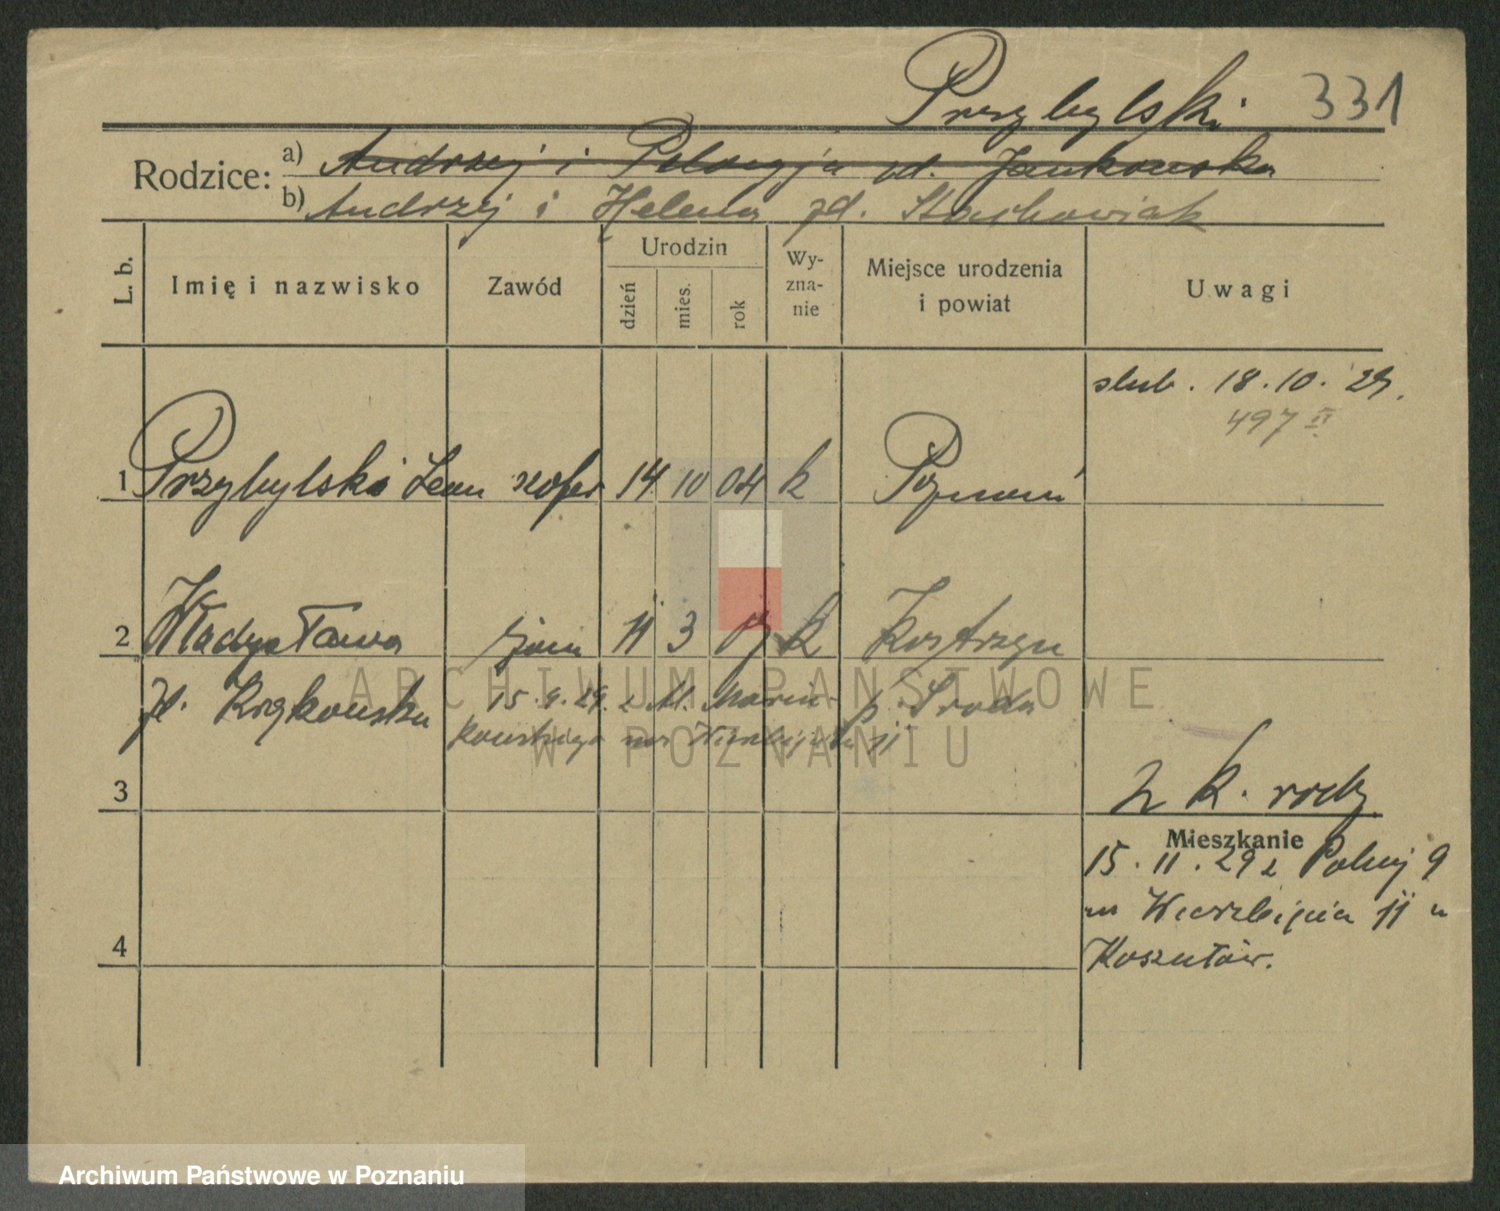 Przybylski 331
Rodzice: a) Andrzej i Pelagja zd. Jankowska
b) Andrzej i Helena zd. Stachowiak
L. b. Imię i nazwisko Zawód Urodzin dzień mies. rok Wy-zna-nie Miejsce urodzenia i powiat Uwagi
ślub. 18.10.29.
497 II
1 Przybylski Leon szofer 14 10 04 k Poznań
2 Władysława żona 11 3 k Kostrzyn
15.9.29. z M. Marcin-
p. Środa
kowskiego na Wierzbięcice 11
3
k. rodz.
Mieszkanie
15.11.29 z Polnej 9
na Wierzbięcice 11 u
Koszutów.
4
ARCHIWUM PAŃSTWOWE
W POZNANIU
Archiwum Państwowe w Poznaniu